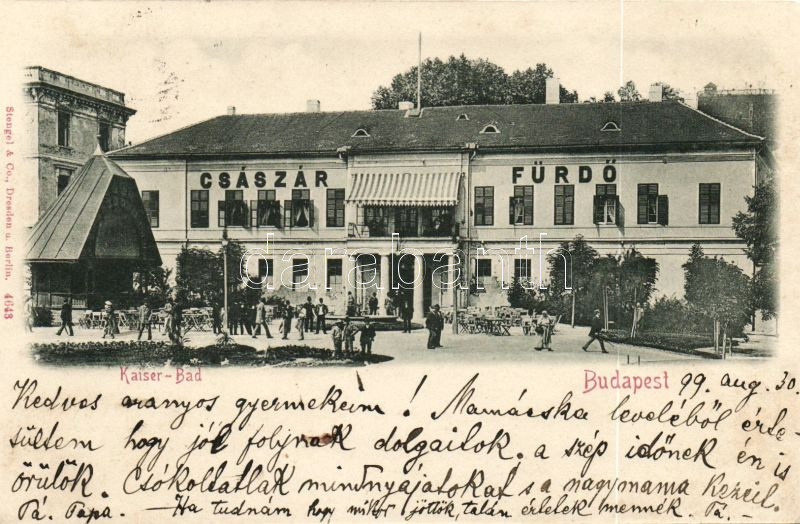 CSÁSZÁR FÜRDŐ
Stengel & Co., Dresden u. Berlin. 4643
darabanth
Kaiser-Bad
Budapest 99. aug. 30.
Kedves aranyos gyermekeim! Mamácska leveléből érte-
sültem hogy jól folynak dolgaitok. a szép időnek én is
örülök. Csókoltatlak mindnyájatokat s a nagymama kezeit.
Tá. Papa. — Ha tudnám hogy mikor jöttök, talán érletek mennék. Tá.